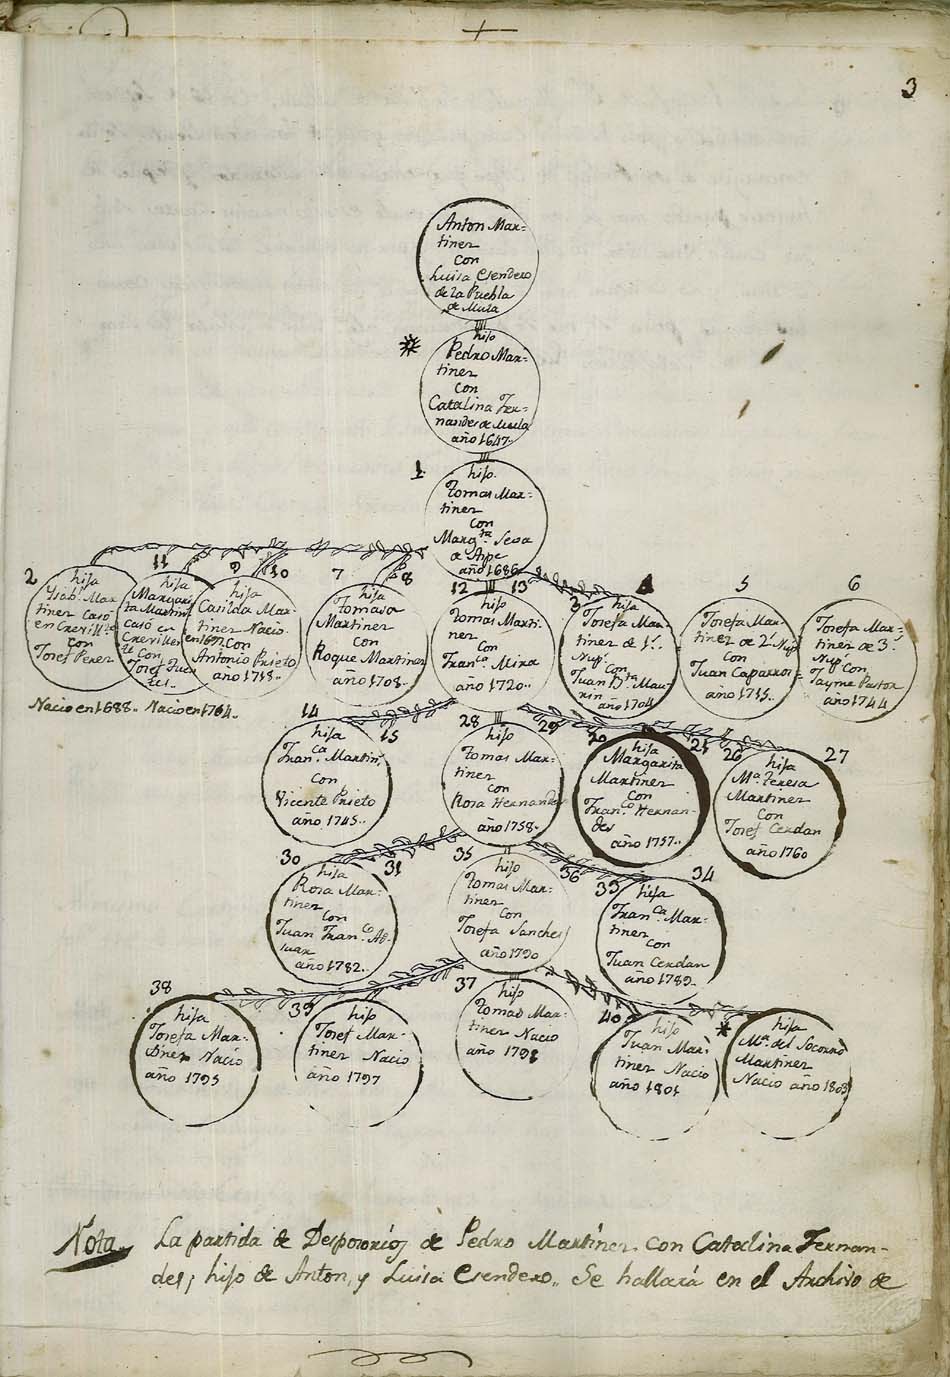 3
Anton Mar=
tinez
con
Luisa Esendero
de la Puebla
de Mula
hijo
Pedro Mar=
tinez
con
Catalina Fer=
nandes de Mula
año 1647.
1.
hijo.
Tomas Mar=
tinez
con
Marg.ta Sesa
de Aspe
año 1686
2
hija
Ysab.l Mar
tinez Casó
en Crevill.te
con
Josef Perez
Nacio en 1688..
11
hija
Margari
ta Martin.z
casó en
Crevillen
te con
Josef
Nacio en 1704.
9
10
hija
Casilda Mar=
tinez Nacio
con
Antonio Prieto
año 1718.
7
8
hija
Tomasa
Martinez
con
Roque Martinez
año 1708.
12
13
hijo
Tomas Marti=
nez
con
Fran.ca Mira
año 1720..
3
4
hija
Josefa Mar=
tinez de 1.s
Nup.s
con
Juan B.ta Mau=
rin
año 1704
5
Josefa Mar=
tinez de 2.s Nup
con
Juan Caparros
año 1715..
6
Josefa Mar=
tinez de 3.s
Nup.s con
Jayme Pastor
año 1744
14
15
hija
Fran.ca Martin.
con
Vicente Prieto
año 1745..
28
29
hijo
Tomas Mar=
tinez
con
Rosa Hernandes
año 1758.
25
hija
Margarita
Martinez
con
Fran.co Hernan=
des
año 1757..
26
27
hija
M.a Teresa
Martinez
con
Josef Cerdan
año 1760
30
31
hija
Rosa Mar=
tinez
con
Juan Fran.co Al=
año 1782..
35
36
hijo
Tomas Mar=
tinez
con
Josefa Sanches
año 1790
33
34
hija
Fran.ca Mar=
tinez
con
Juan Cerdan
año 1789.
38
hija
Josefa Mar=
tinez Nacio
año 1795
39
hijo
Josef Mar=
tinez Nacio
año 1797
37
hijo
Tomas Mar=
tinez Nacio
año 1798
40
hijo
Juan Mar=
tinez Nacio
año 1801
hija
M.a del Socorro
Martinez
Nacio año 1803
Nota. La partida de Desposorios de Pedro Martinez con Catalina Fernan-
des, hijo de Anton, y Luisa Esendero.. Se hallará en el Archivo de